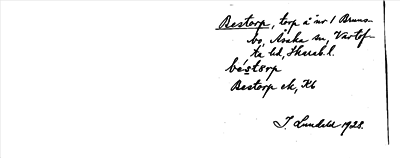 Bestorp, torp å nr 1 Bruns-
bo, Åsaka sn, Vartof-
ta hd, Skarab. l.
bé̱storp
Bestorp ek, Kb
J. Lundahl 1928.